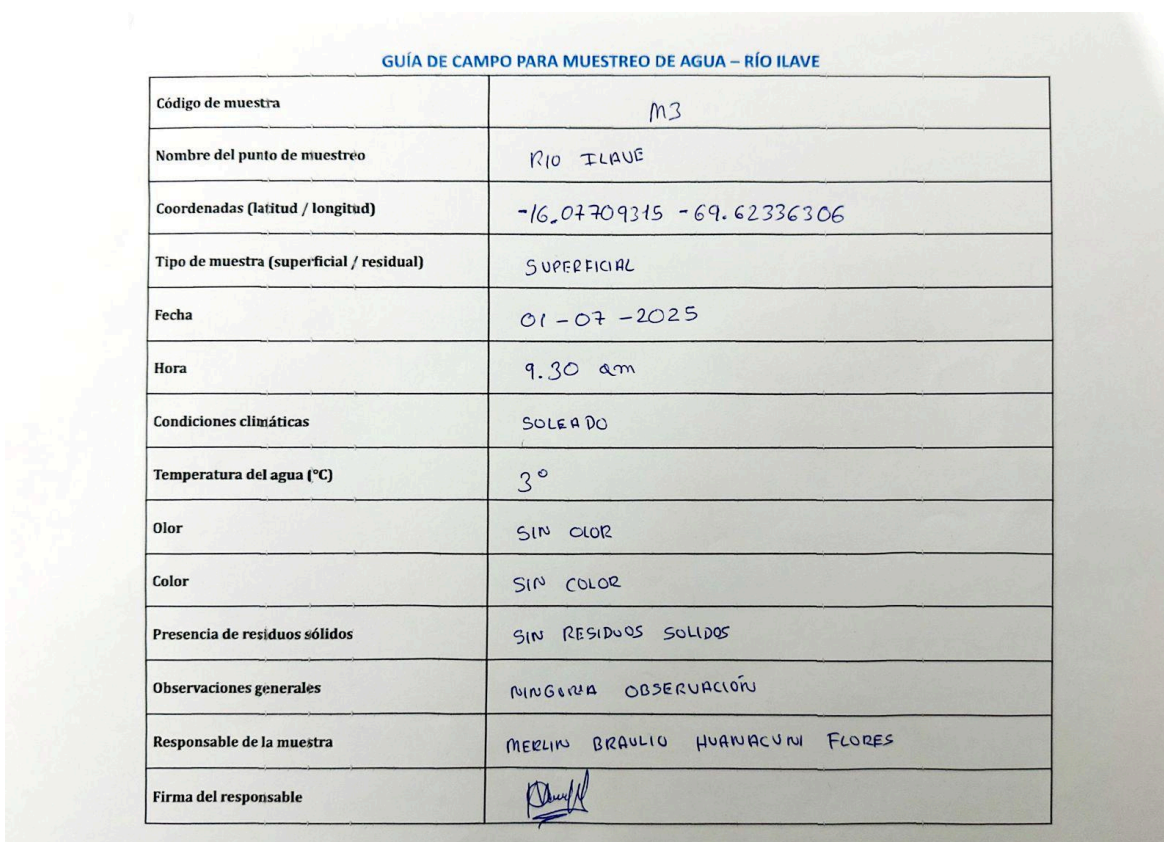 GUÍA DE CAMPO PARA MUESTREO DE AGUA – RÍO ILAVE
Código de muestra M3
Nombre del punto de muestreo RIO ILAVE
Coordenadas (latitud / longitud) -16.07709315 -69.62336306
Tipo de muestra (superficial / residual) SUPERFICIAL
Fecha 01-07-2025
Hora 9.30 am
Condiciones climáticas SOLEADO
Temperatura del agua (°C) 3°
Olor SIN OLOR
Color SIN COLOR
Presencia de residuos sólidos SIN RESIDUOS SOLIDOS
Observaciones generales NINGUNA OBSERVACIÓN
Responsable de la muestra MERLIN BRAULIO HUANACUNI FLORES
Firma del responsable